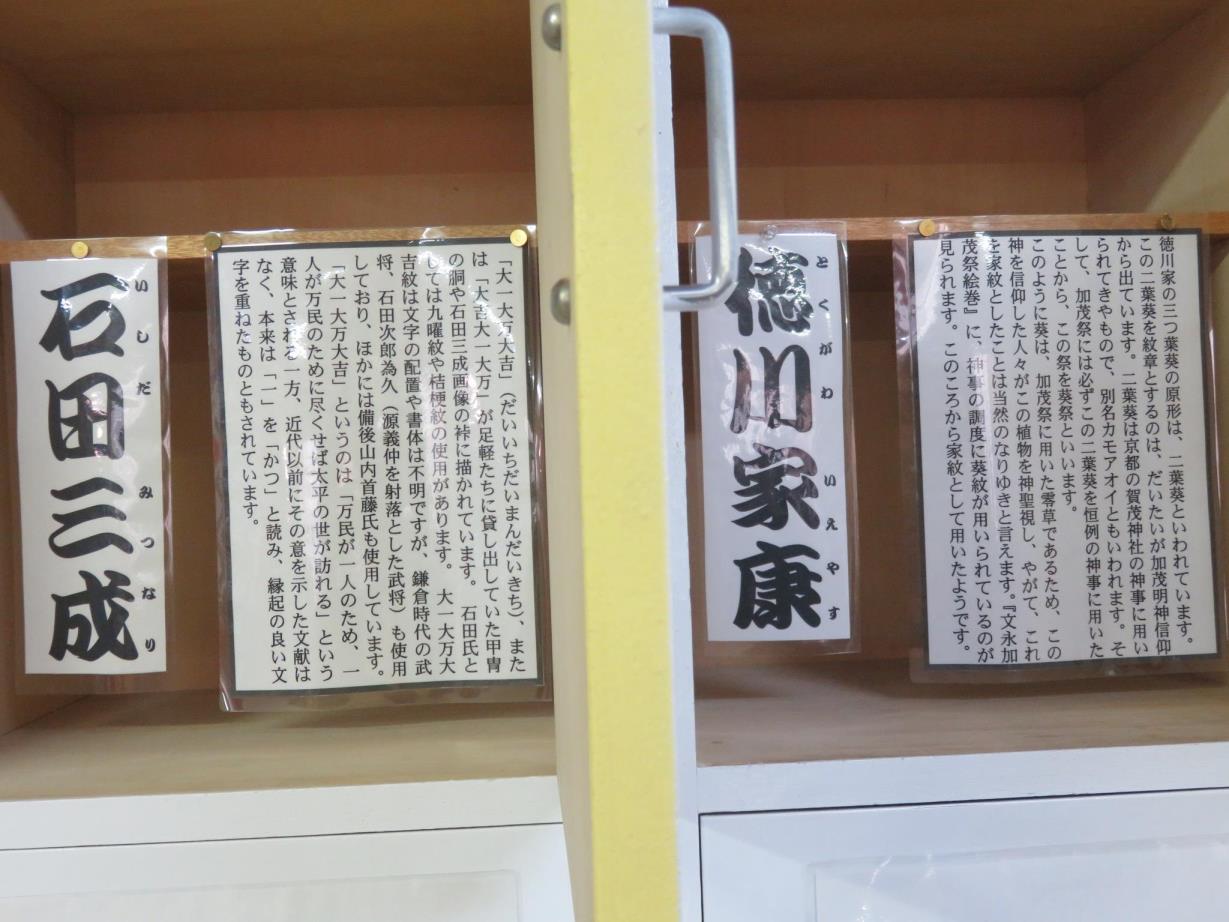 石田三成
いしだみつなり
「大一大万大吉」（だいいちだいまんだいきち）、また
は「大吉大一大万」が足軽たちに貸し出していた甲冑
の胴や石田三成画像の裃に描かれています。　石田氏と
しては九曜紋や桔梗紋の使用があります。　大一大万大
吉紋は文字の配置や書体は不明ですが、鎌倉時代の武
将、石田次郎為久（源義仲を射落とした武将）も使用
しており、ほかには備後山内首藤氏も使用しています。
「大一大万大吉」というのは「万民が一人のため、一
人が万民のために尽くせば太平の世が訪れる」という
意味とされる一方、近代以前にその意を示した文献は
なく、本来は「一」を「かつ」と読み、縁起の良い文
字を重ねたものともされています。
徳川家康
とくがわいえやす
徳川家の三つ葉葵の原形は、二葉葵といわれています。
この二葉葵を紋章とするのは、だいたいが加茂明神信仰
から出ています。二葉葵は京都の賀茂神社の神事に用い
られてきやもので、別名カモアオイともいわれます。そ
して、加茂祭には必ずこの二葉葵を恒例の神事に用いた
ことから、この祭を葵祭といいます。
このように葵は、加茂祭に用いた零草であるため、この
神を信仰した人々がこの植物を神聖視し、やがて、これ
を家紋としたことは当然のなりゆきと言えます。『文永加
茂祭絵巻』に、神事の調度に葵紋が用いられているのが
見られます。このころから家紋として用いたようです。